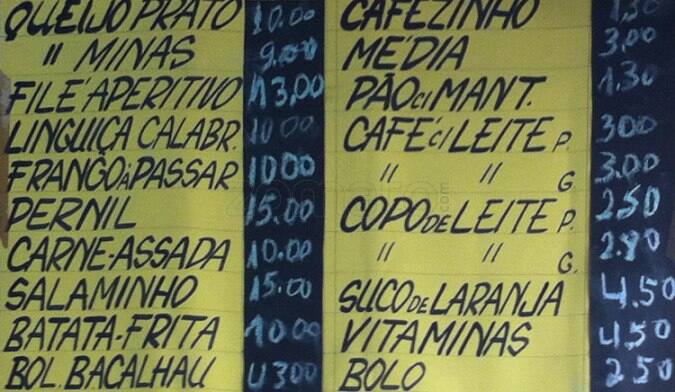 QUEIJO PRATO 10.00
" MINAS 9.00
FILÉ APERITIVO 13,00
LINGUIÇA CALABR. 10 00
FRANGO À PASSAR 10 00
PERNIL 15.00
CARNE-ASSADA 10.00
SALAMINHO 15.00
BATATA-FRITA 10 00
BOL. BACALHAU
CAFEZINHO 1,30
MÉDIA 3,00
PÃO C/ MANT. 1.30
CAFÉ C/ LEITE P. 3 00
" " G. 3.00
COPO DE LEITE P. 2.50
" " G. 2.80
SUCO DE LARANJA 4.50
VITAMINAS 4,50
BOLO 2.50